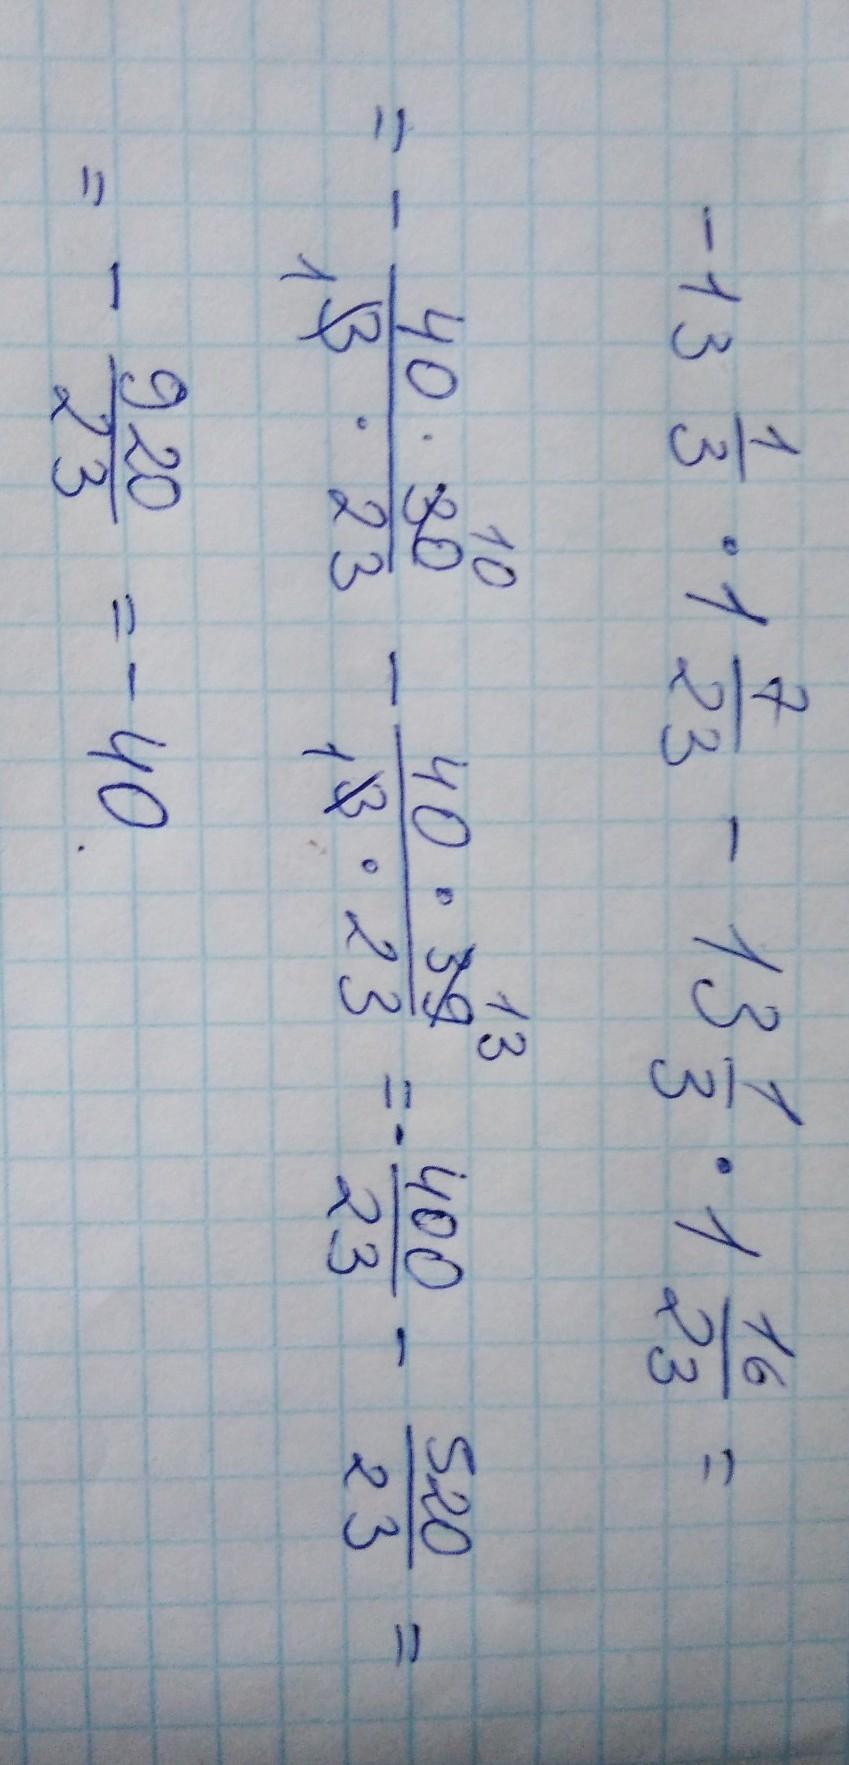 -13 1/3 · 1 7/23 - 13 1/3 · 1 16/23 =
= - 40 · 30 10 / 1 3 · 23 - 40 · 39 13 / 1 3 · 23 = - 400/23 - 520/23 =
= - 920/23 = - 40